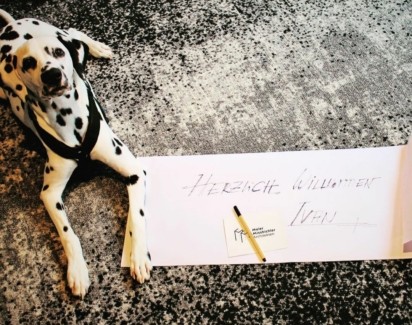 HERZLICH WILLKOMMEN
IVAN